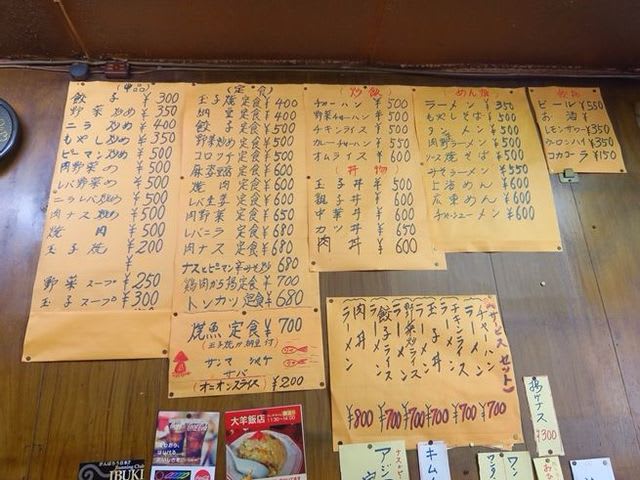 (単品)
餃子 ¥300
野菜炒め ¥350
ニラ炒め ¥400
もやし炒め ¥350
ピーマン炒め ¥500
肉野菜め ¥500
レバ野菜め ¥500
ニラレバ炒め ¥500
肉ナス炒め ¥500
焼肉 ¥500
玉子焼 ¥200
¥
野菜スープ ¥250
玉子スープ ¥300
(定食)
玉子焼定食 ¥400
納豆定食 ¥400
餃子定食 ¥500
野菜炒め定食 ¥500
コロッケ定食 ¥500
麻婆豆腐定食 ¥600
焼肉定食 ¥600
レバ生姜定食 ¥600
肉野菜定食 ¥650
レバニラ定食 ¥680
肉ナス定食 ¥680
ナスとピーマン辛みそ炒 680
鶏肉から揚定食 ¥700
トンカツ定食 ¥680
焼魚定食 ¥700
(玉子焼か納豆付)
サンマ シャケ
サバ
(オニオンスライス) ¥200
炒飯
チャーハン ¥500
野菜チャーハン ¥500
チキンライス ¥500
カレーチャーハン ¥550
オムライス ¥600
丼物
玉子丼 ¥500
親子丼 ¥600
中華丼 ¥600
カツ丼 ¥650
肉丼 ¥600
めん類
ラーメン ¥350
もやしそば ¥500
タンメン ¥500
肉野ラーメン ¥500
ソース焼そば ¥500
みそラーメン ¥550
上海めん ¥600
広東めん ¥600
チャーシューメン ¥600
飲物
ビール ¥550
お酒 ¥
レモンサワー ¥350
ウーロンハイ ¥350
コカコーラ ¥150
(サービスセット)
チャーハンラーメン ¥700
チキンライスラーメン ¥700
玉子丼ラーメン ¥700
野菜炒ライスラーメン ¥700
餃子ライスラーメン ¥700
肉丼ラーメン ¥800
揚ゲナス ¥300
大羊飯店
11:30-14:00
Coca-Cola
IBUKI
アジ
キム
ワン